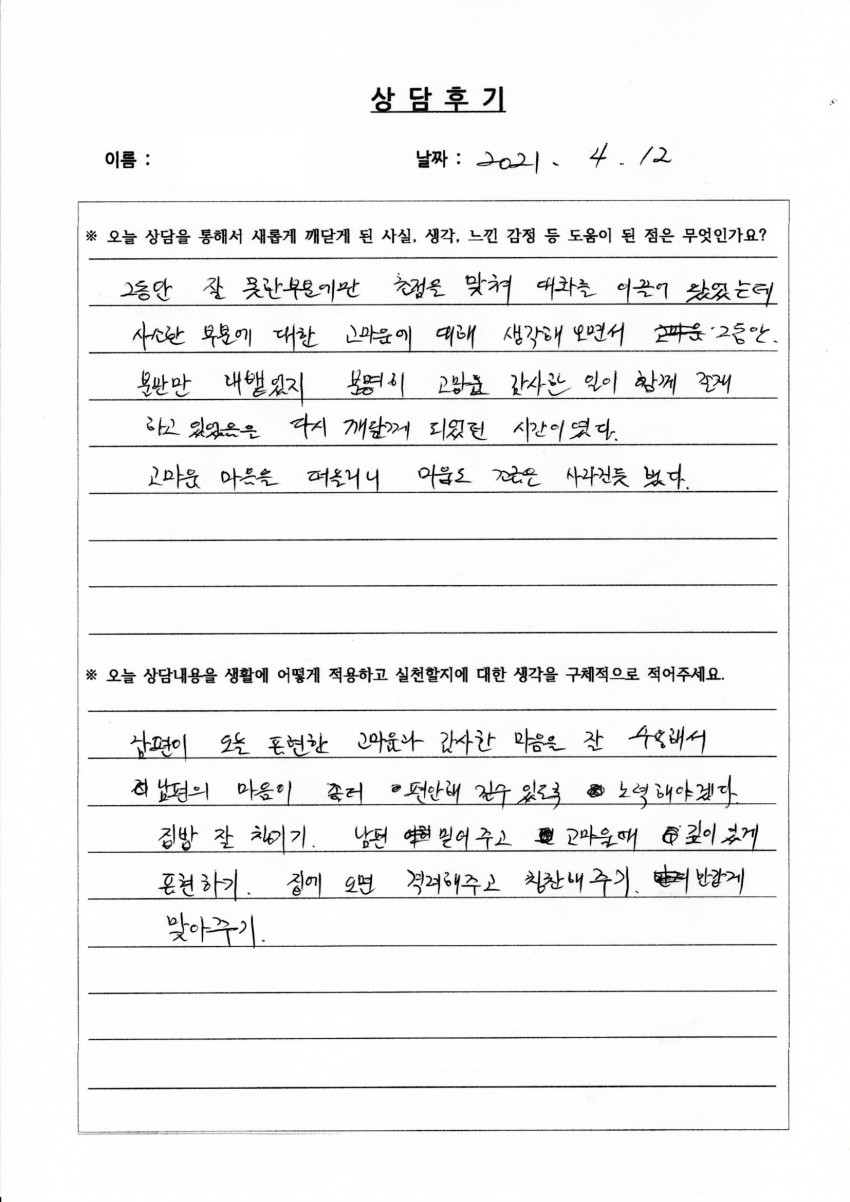 상 담 후 기
이름 :
날짜 : 2021. 4. 12
※ 오늘 상담을 통해서 새롭게 깨닫게 된 사실, 생각, 느낀 감정 등 도움이 된 점은 무엇인가요?
그동안 잘 못한부분에만 촛점을 맞춰 대화를 이끌어 왔었는데
사소한 부분에 대한 고마운에 대해 생각해 보면서 그동안.
불만만 내뱉었지 분명히 고마움 감사한 일이 함께 존재
하고 있었음은 다시 깨닫게 되었던 시간이였다.
고마운 마음을 떠올리니 마음도 조금은 사라진듯 했다.
※ 오늘 상담내용을 생활에 어떻게 적용하고 실천할지에 대한 생각을 구체적으로 적어주세요.
남편이 오늘 표현한 고마운과 감사한 마음을 잘 수용해서
남편의 마음이 좀더 편안해 질수 있도록 노력해야겠다.
집밥 잘 챙기기. 남편 믿어 주고 고마울때 깊이 있게
표현하기. 집에 오면 격려해주고 칭찬해 주기. 반갑게
맞아주기.